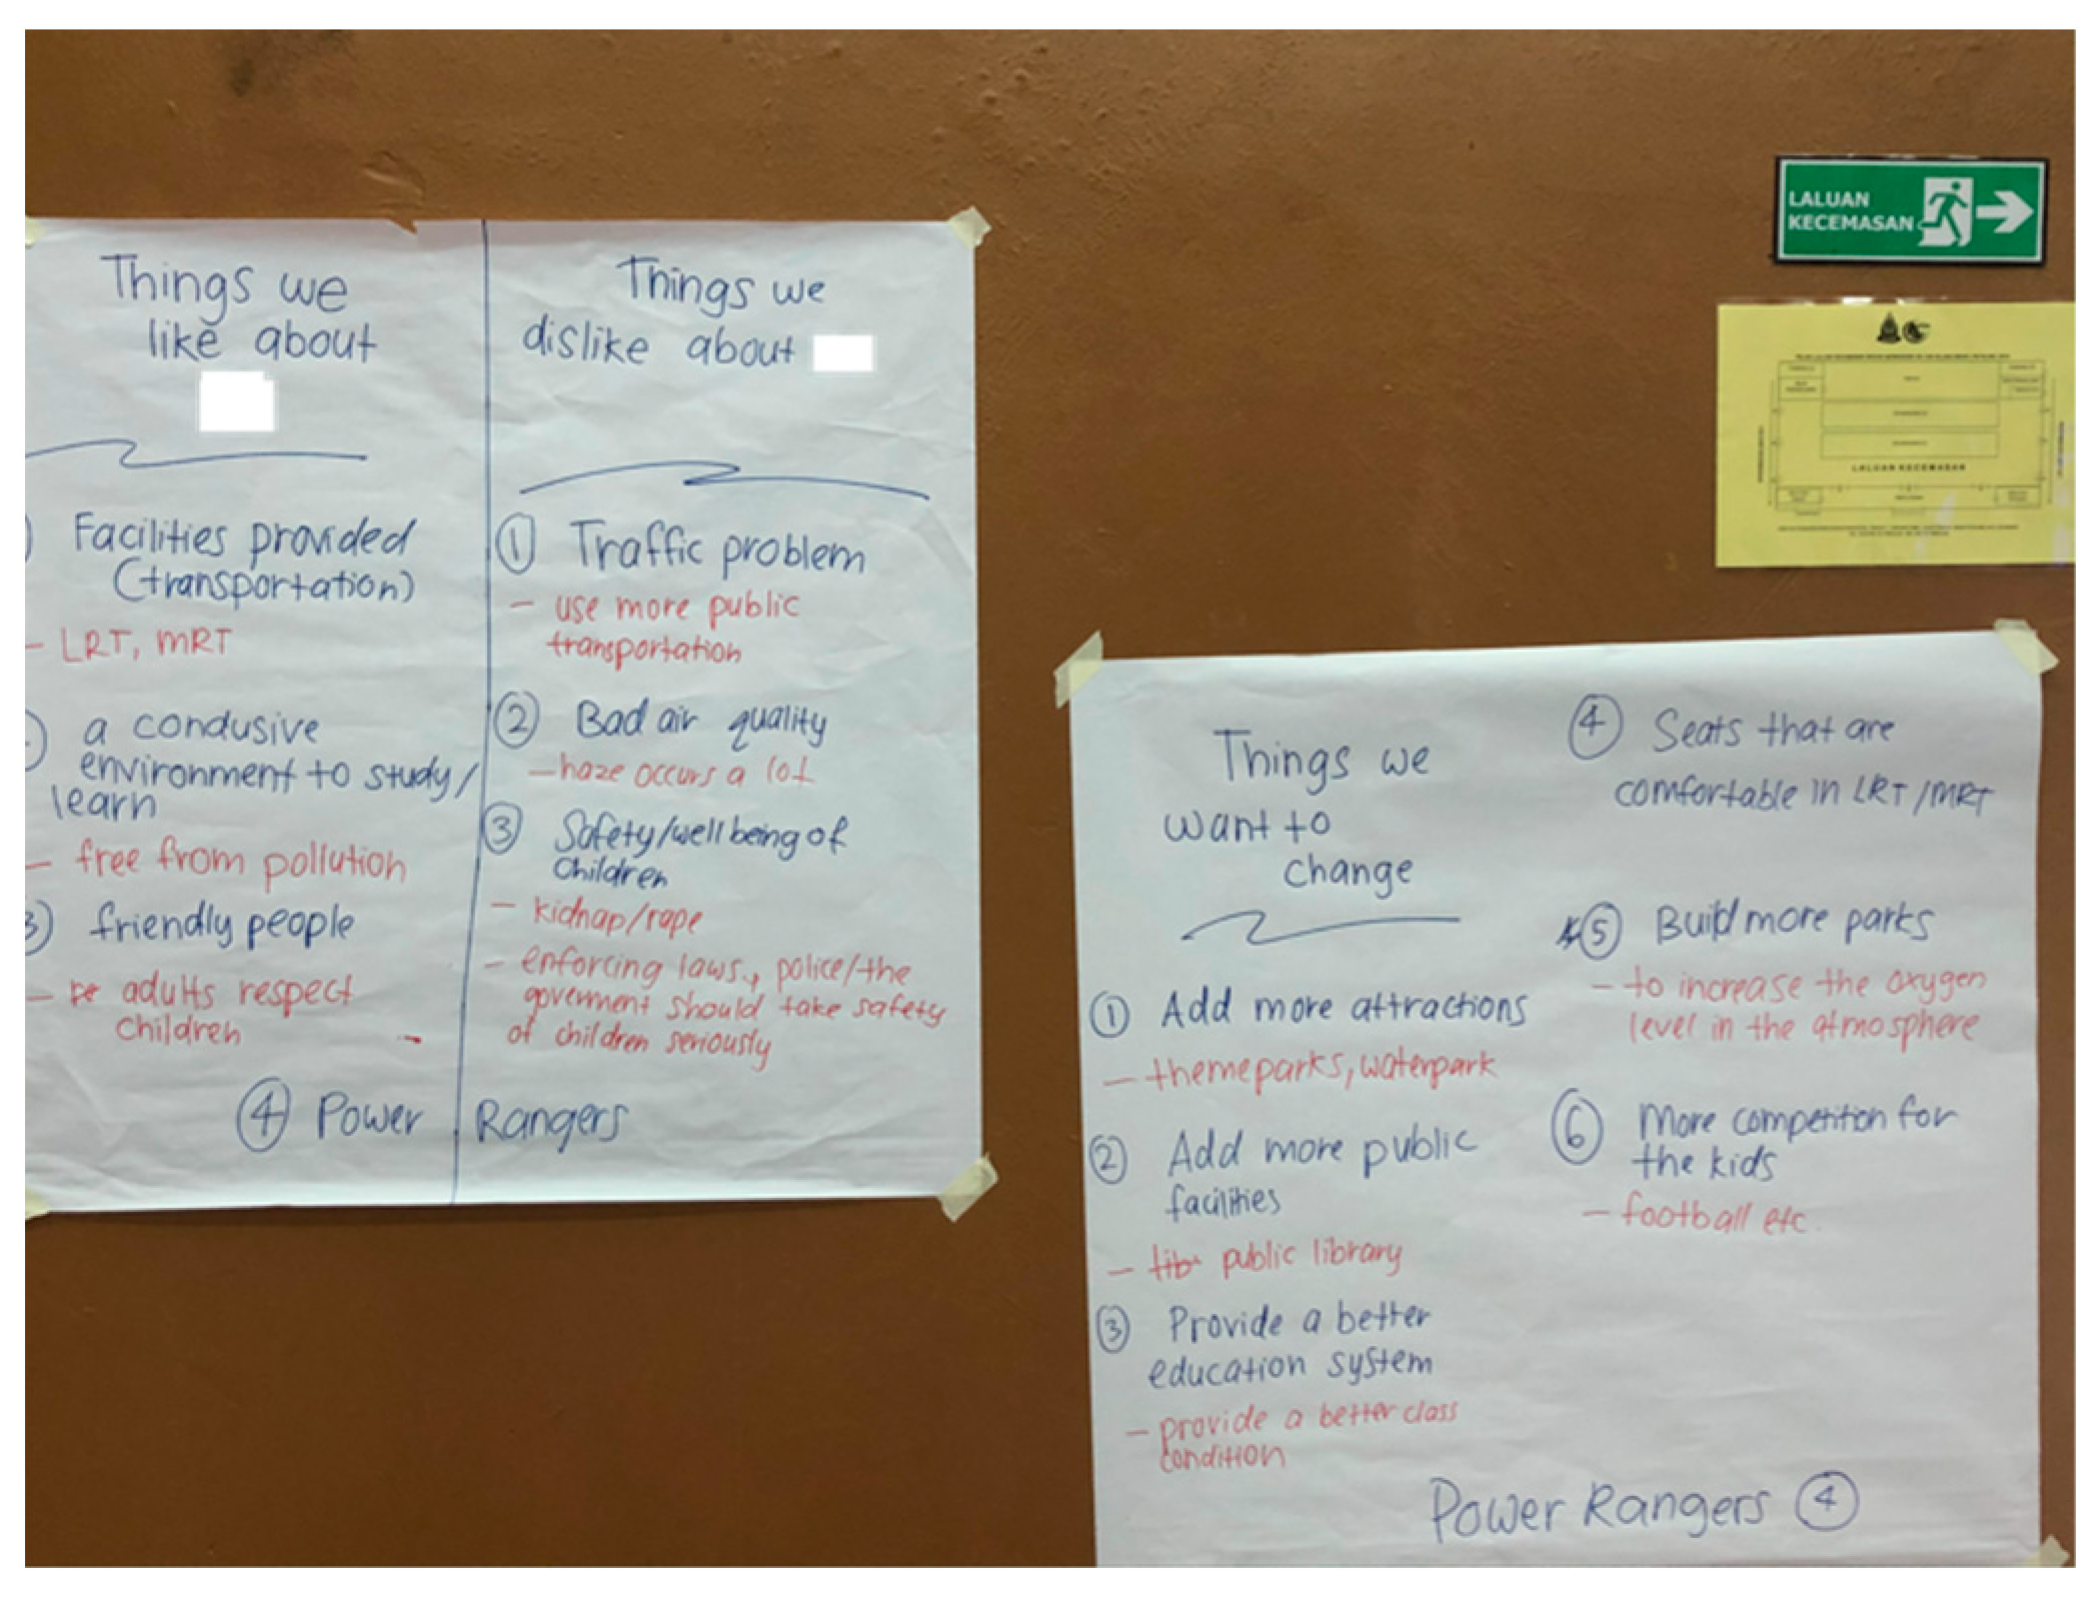 Things we
like about
Facilities provided
(transportation)
- LRT, MRT
a condusive
environment to study/
learn
- free from pollution
3) friendly people
- adults respect
children
Things we
dislike about
① Traffic problem
- use more public
transportation
② Bad air quality
- haze occurs a lot
③ Safety/wellbeing of
children
- kidnap/rape
- enforcing laws., police/the
goverment should take safety
of children seriously
④ Power Rangers
LALUAN
KECEMASAN
LALUAN KECEMASAN
Things we
want to
change
① Add more attractions
- themeparks, waterpark
② Add more public
facilities
- public library
③ Provide a better
education system
- provide a better class
condition
④ Seats that are
comfortable in LRT/MRT
⑤ Build more parks
- to increase the oxygen
level in the atmosphere
⑥ More competition for
the kids
- football etc.
Power Rangers ④